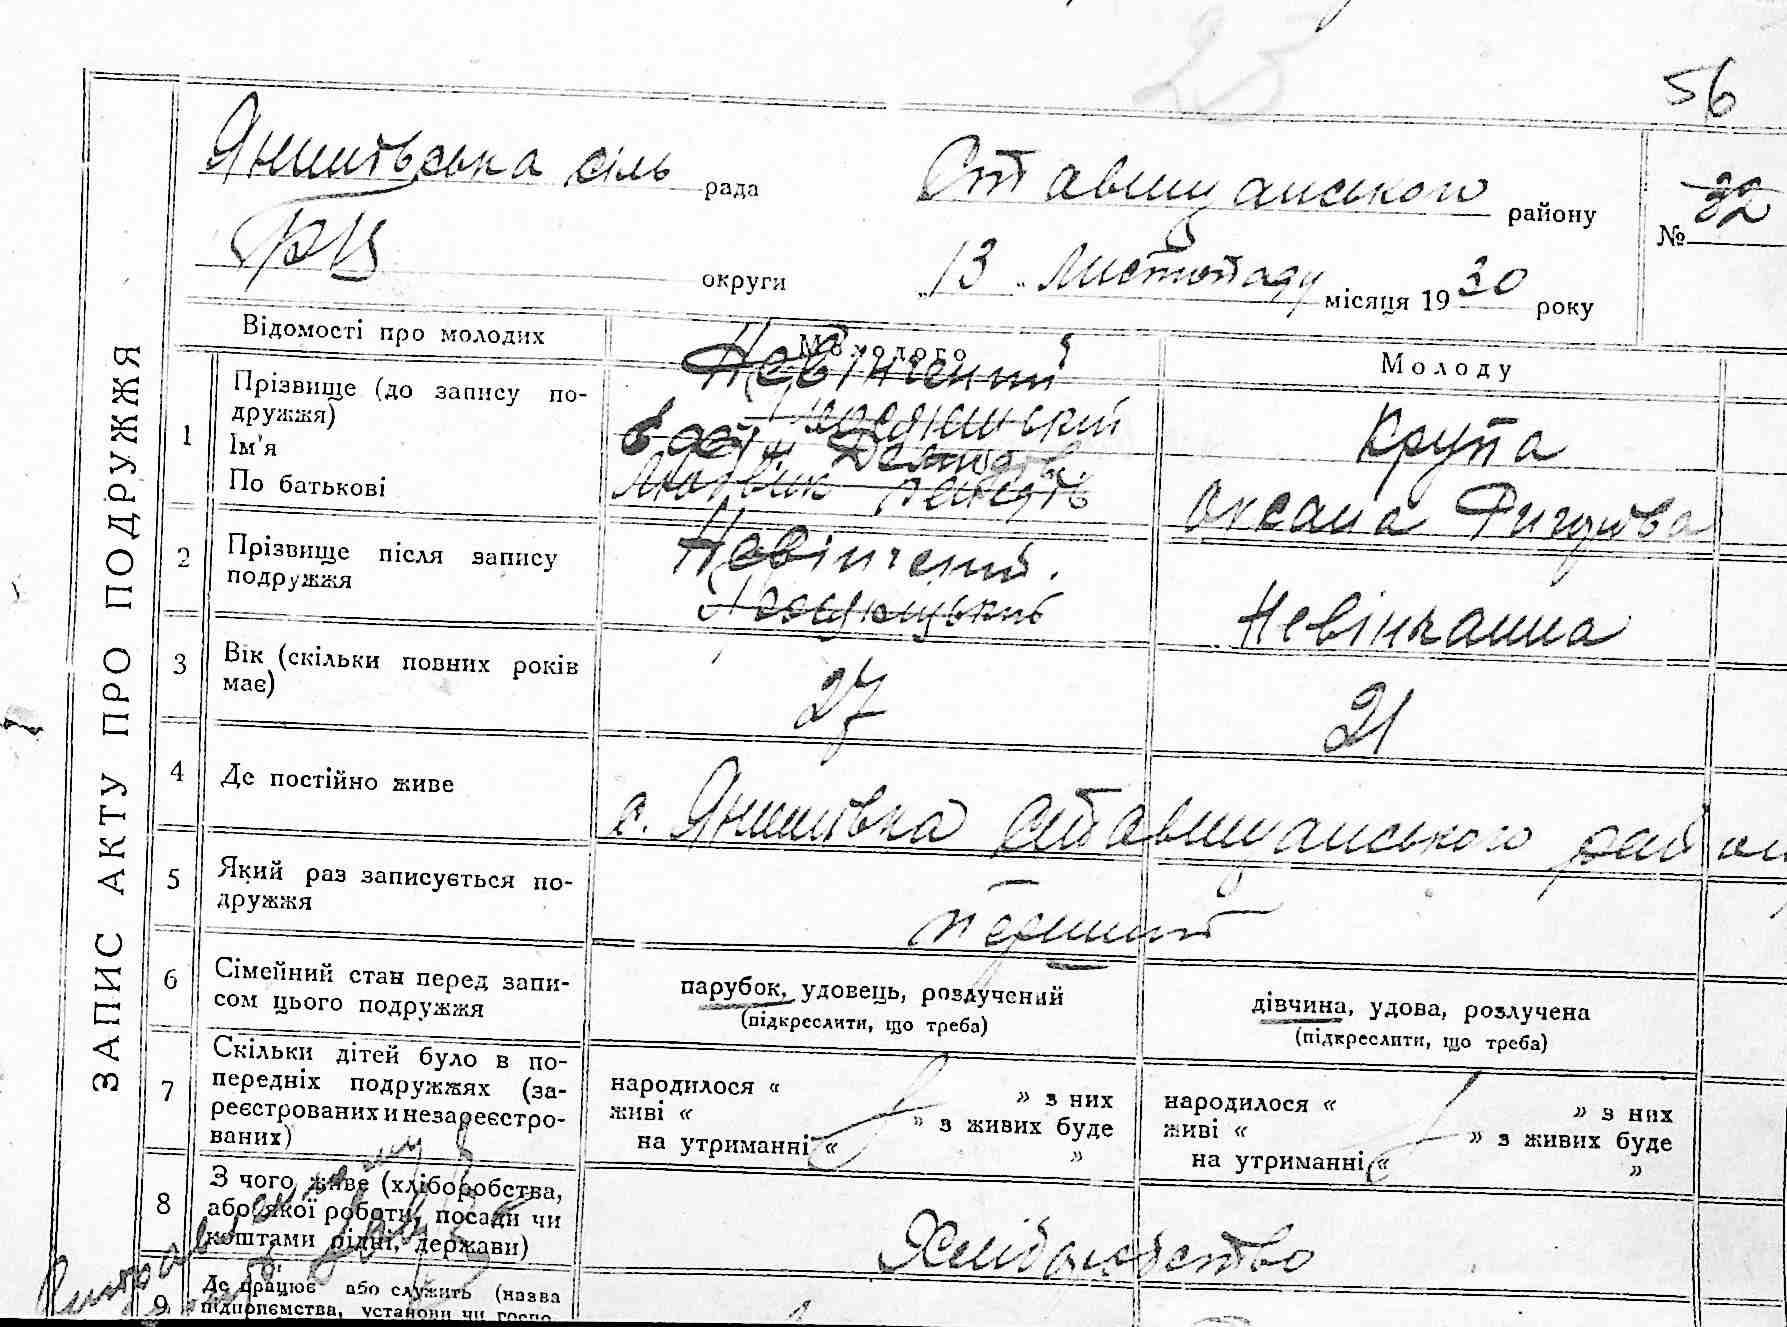 56
Янишівська сіль рада Ставищанського району № 32
округи „13“ листопаду місяця 1930 року
ЗАПИС АКТУ ПРО ПОДРУЖЖЯ
Відомості про молодих
Молодого
Молоду
1
Прізвище (до запису по-
дружжя)
Ім'я
По батькові
Невінчений
Крупа
Оксана
2
Прізвище після запису
подружжя
Невінчений.
Невінчанна
3
Вік (скільки повних років
має)
27
21
4
Де постійно живе
с. Янишівка Ставищанського району
5
Який раз записується по-
дружжя
Перший
6
Сімейний стан перед запи-
сом цього подружжя
парубок, удовець, розлучений
(підкреслити, що треба)
дівчина, удова, розлучена
(підкреслити, що треба)
7
Скільки дітей було в по-
передніх подружжях (за-
реєстрованих и незареєстро-
ваних)
народилося « » з них
живі « » з живих буде
на утриманні « »
народилося « » з них
живі « » з живих буде
на утриманні « »
8
З чого живе (хліборобства,
або якої роботи, посади чи
коштами рідні, держави)
Хліборобство
9
Де працює або служить (назва
підприємства, установи чи госпо-